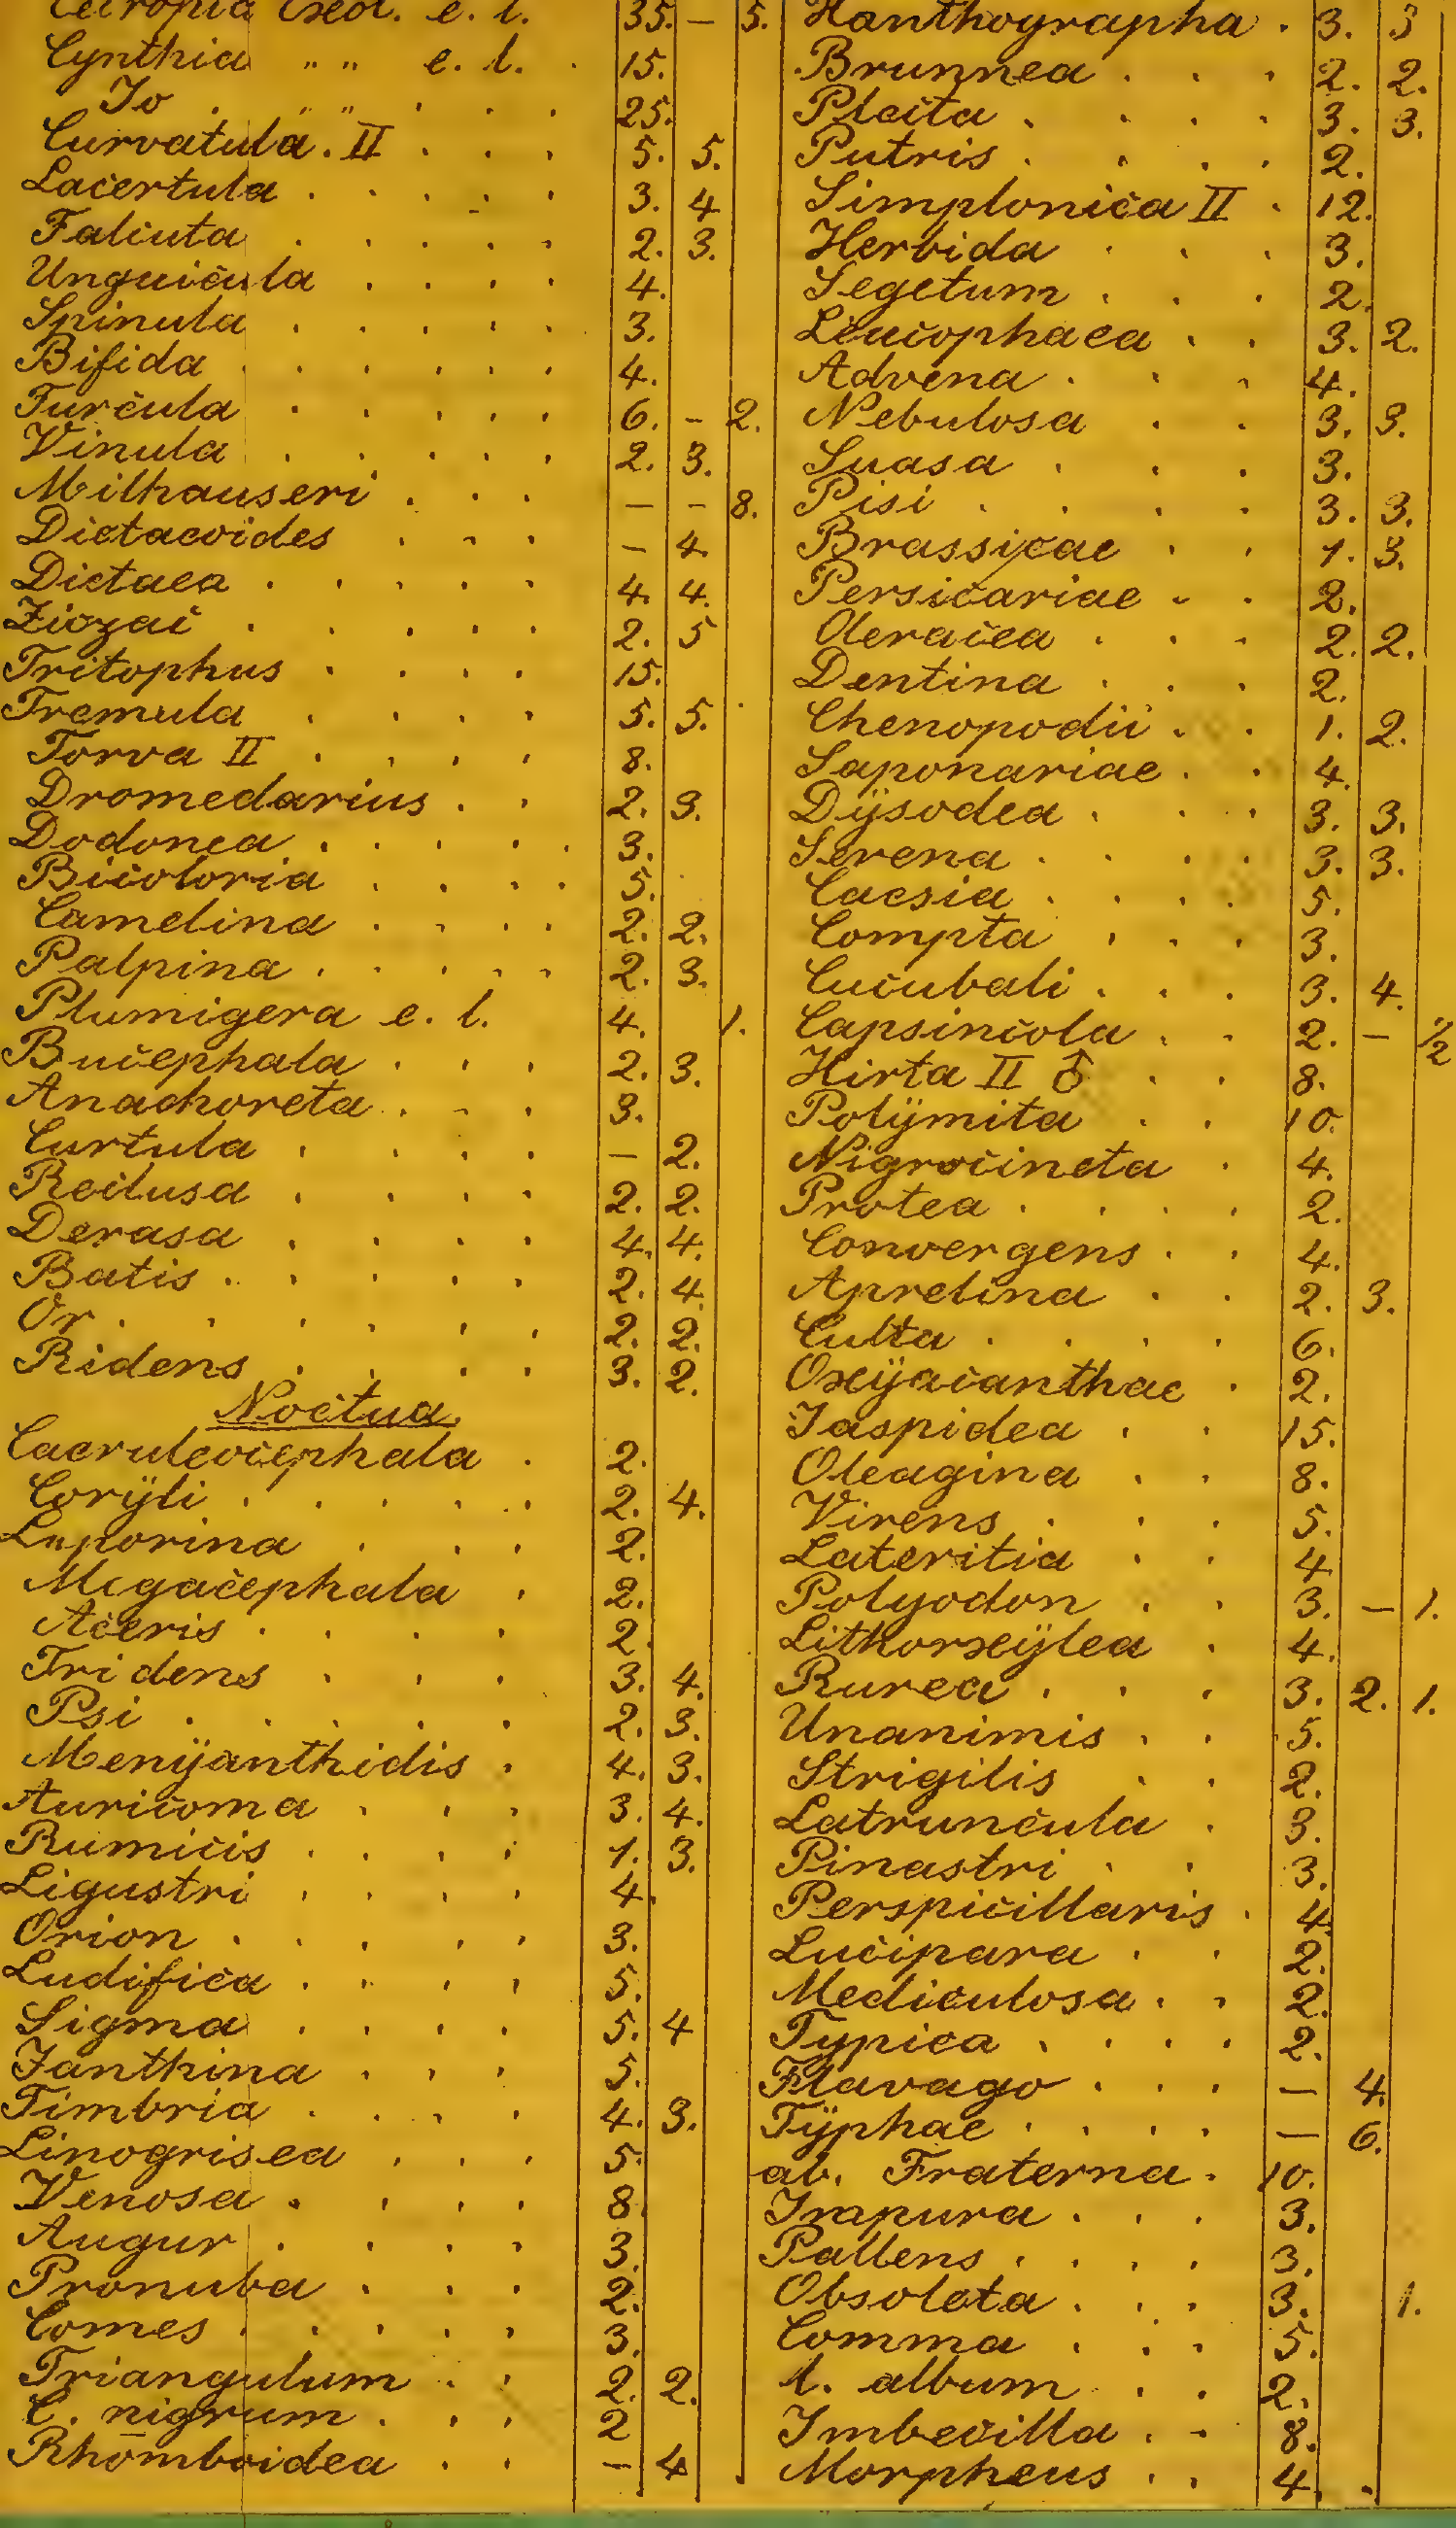 Cecropia exot. e. l. 35. – 5.
Cynthia " " e. l. 15.
Io " " 25.
Curvatula. II 5. 5.
Lacertula 3. 4
Falcuta 2. 3.
Unguicula 4.
Spinula 3.
Bifida 4.
Furcula 6. – 2.
Vinula 2. 3.
Milhauseri – – 8.
Dictacoides – 4.
Dictaea 4. 4.
Ziczac 2. 5
Tritophus 15.
Tremula 5. 5.
Torva II 8.
Dromedarius 2. 3.
Dodonea 3.
Bicoloria 5.
Camelina 2. 2.
Palpina 2. 3.
Plumigera e. l. 4. 1.
Bucephala 2. 3.
Anachoreta 3.
Curtula – 2.
Reclusa 2. 2.
Derasa 4. 4.
Batis 2. 4.
Or 2. 2.
Ridens 3. 2.
Noctua.
Caeruleocephala 2.
Corÿli 2. 4.
Leporina 2.
Megacephala 2.
Aceris 2.
Tridens 3. 4.
Psi 2. 3.
Menÿanthidis 4. 3.
Auricoma 3. 4.
Rumicis 1. 3.
Ligustri 4.
Orion 3.
Ludifica 5.
Sigma 5. 4
Janthina 5.
Fimbria 4. 3.
Linogrisea 5.
Venosa 8
Augur 3.
Pronuba 2.
Comes 3.
Triangulum 2. 2.
C. nigrum 2
Rhomboidea – 4
Xanthographa 3. 3
Brunnea 2. 2.
Plecta 3. 3.
Putris 2.
Simplonica II 12.
Herbida 3.
Segetum 2.
Leucophaea 3. 2.
Advena 4.
Nebulosa 3. 3.
Suasa 3.
Pisi 3. 3.
Brassicae 1. 3.
Persicariae 2.
Oleracea 2. 2.
Dentina 2.
Chenopodii 1. 2.
Saponariae 4.
Dÿsodea 3. 3.
Serena 3. 3.
Caesia 5.
Compta 3.
Cucubali 3. 4.
Capsincola 2. – 1/2
Hirta II ♂ 8.
Polÿmita 10.
Nigrocincta 4.
Protea 2.
Convergens 4.
Aprelina 2. 3.
Culta 6.
Oxÿacanthae 2.
Jaspidea 15.
Oleagina 8.
Virens 5.
Lateritia 4
Polyodon 3. – 1.
Lithorxÿlea 4.
Rurea 3. 2. 1.
Unanimis 5.
Strigilis 2.
Latruncula 3.
Pinastri 3.
Perspicillaris 4
Lucipara 2.
Mediculosa 2.
Typica 2.
Flavago – 4.
Tÿphae – 6.
ab. Fraterna 10.
Impura 3.
Pallens 3.
Obsoleta 3. 1.
Comma 5.
l. album 2.
Imbecilla 8.
Morpheus 4.